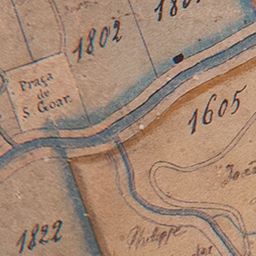 1802
Praça
de
S. Goar.
1605
1822
Philippe